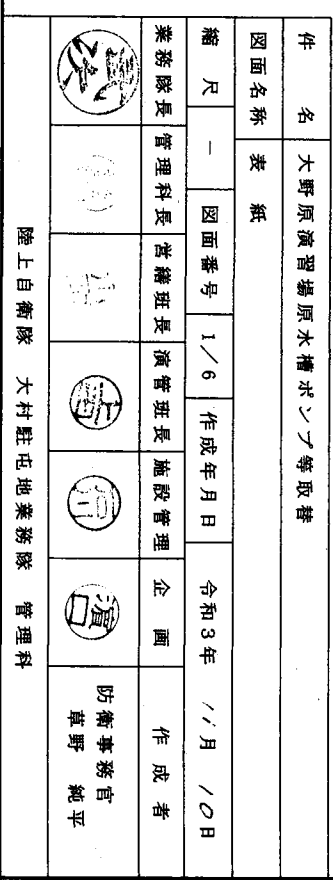 件 名 大野原演習場原水槽ポンプ等取替
図面名称 表 紙
縮 尺 － 図面番号 1/6 作成年月日 令和3年 11月 10日
業務隊長 管理科長 営繕班長 演管班長 施設管理 企 画 作 成 者
濵口
防衛事務官
草野 純平
陸上自衛隊 大村駐屯地業務隊 管理科